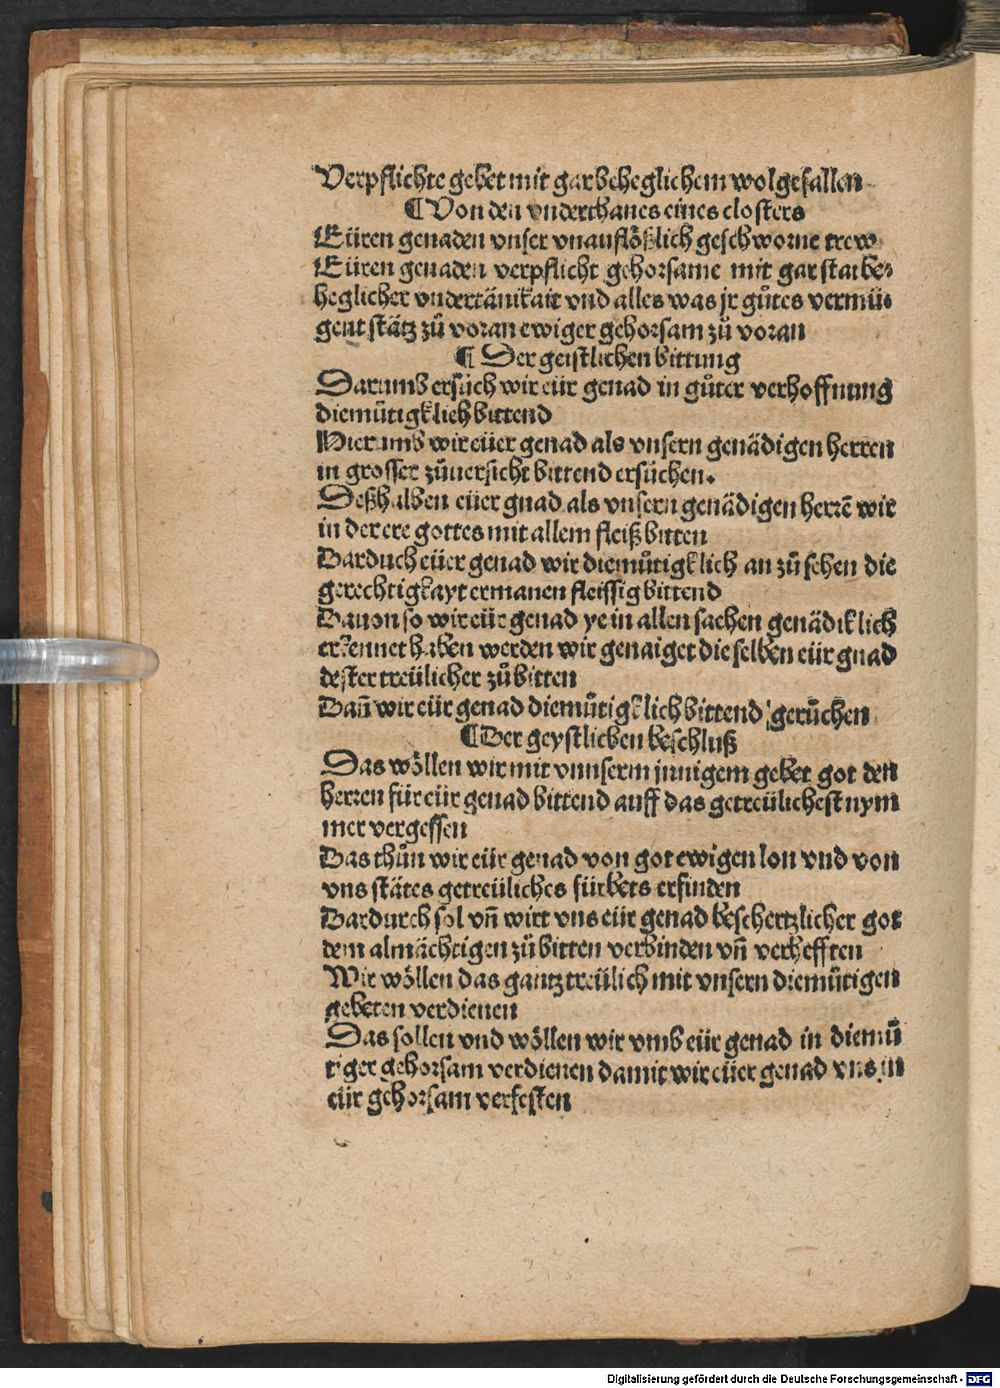 Verpflichte gebet mit gar beheglichem wolgefallen
¶ Von den vnderthanes eines closters
Eüren genaden vnser vnauflößlich geschworne trew
Eüren genaden verpflicht gehorsame mit gar star be⸗
heglicher vndertänikait vnd alles was jr gůtes vermü⸗
gent stätz zů voran ewiger gehorsam zů voran
¶ Der geistlichen bittung
Darumb ersůch wir eür genad in gůter verhoffnung
diemůtigklich bittend
Hierumb wir eüer genad als vnsern genädigen herren
in grosser zůuersicht bittend ersůchen.
Deßhalben eüer gnad als vnsern genädigen herrē wir
in der ere gottes mit allem fleiß bitten
Darduch eüer genad wir diemůtigklich an zů sehen die
gerechtigkayt ermanen fleissig bittend
Dauon so wir eür genad ye in allen sachen genädiklich
erkennet haben werden wir genaiget die selben eür gnad
dester treülicher zů bitten
Dañ wir eür genad diemůtigklich bittend gerůchen
¶ Der geystlichen beschluß
Das wöllen wir mit vnnserm jnnigem gebet got den
herren für eür genad bittend auff das getreülichest nym
mer vergessen
Das thůn wir eür genad von got ewigen lon vnd von
vns stätes getreüliches fürbets erfinden
Dardurch sol vñ wirt vns eür genad beschertzlicher got
dem almächtigen zů bitten verbinden vñ verhefften
Wir wöllen das gantz treülich mit vnsern diemůtigen
gebeten verdienen
Das sollen vnd wöllen wir vmb eür genad in diemů
tiger gehorsam verdienen damit wir eüer genad vns in
eür gehorsam verfesten
Digitalisierung gefördert durch die Deutsche Forschungsgemeinschaft - DFG